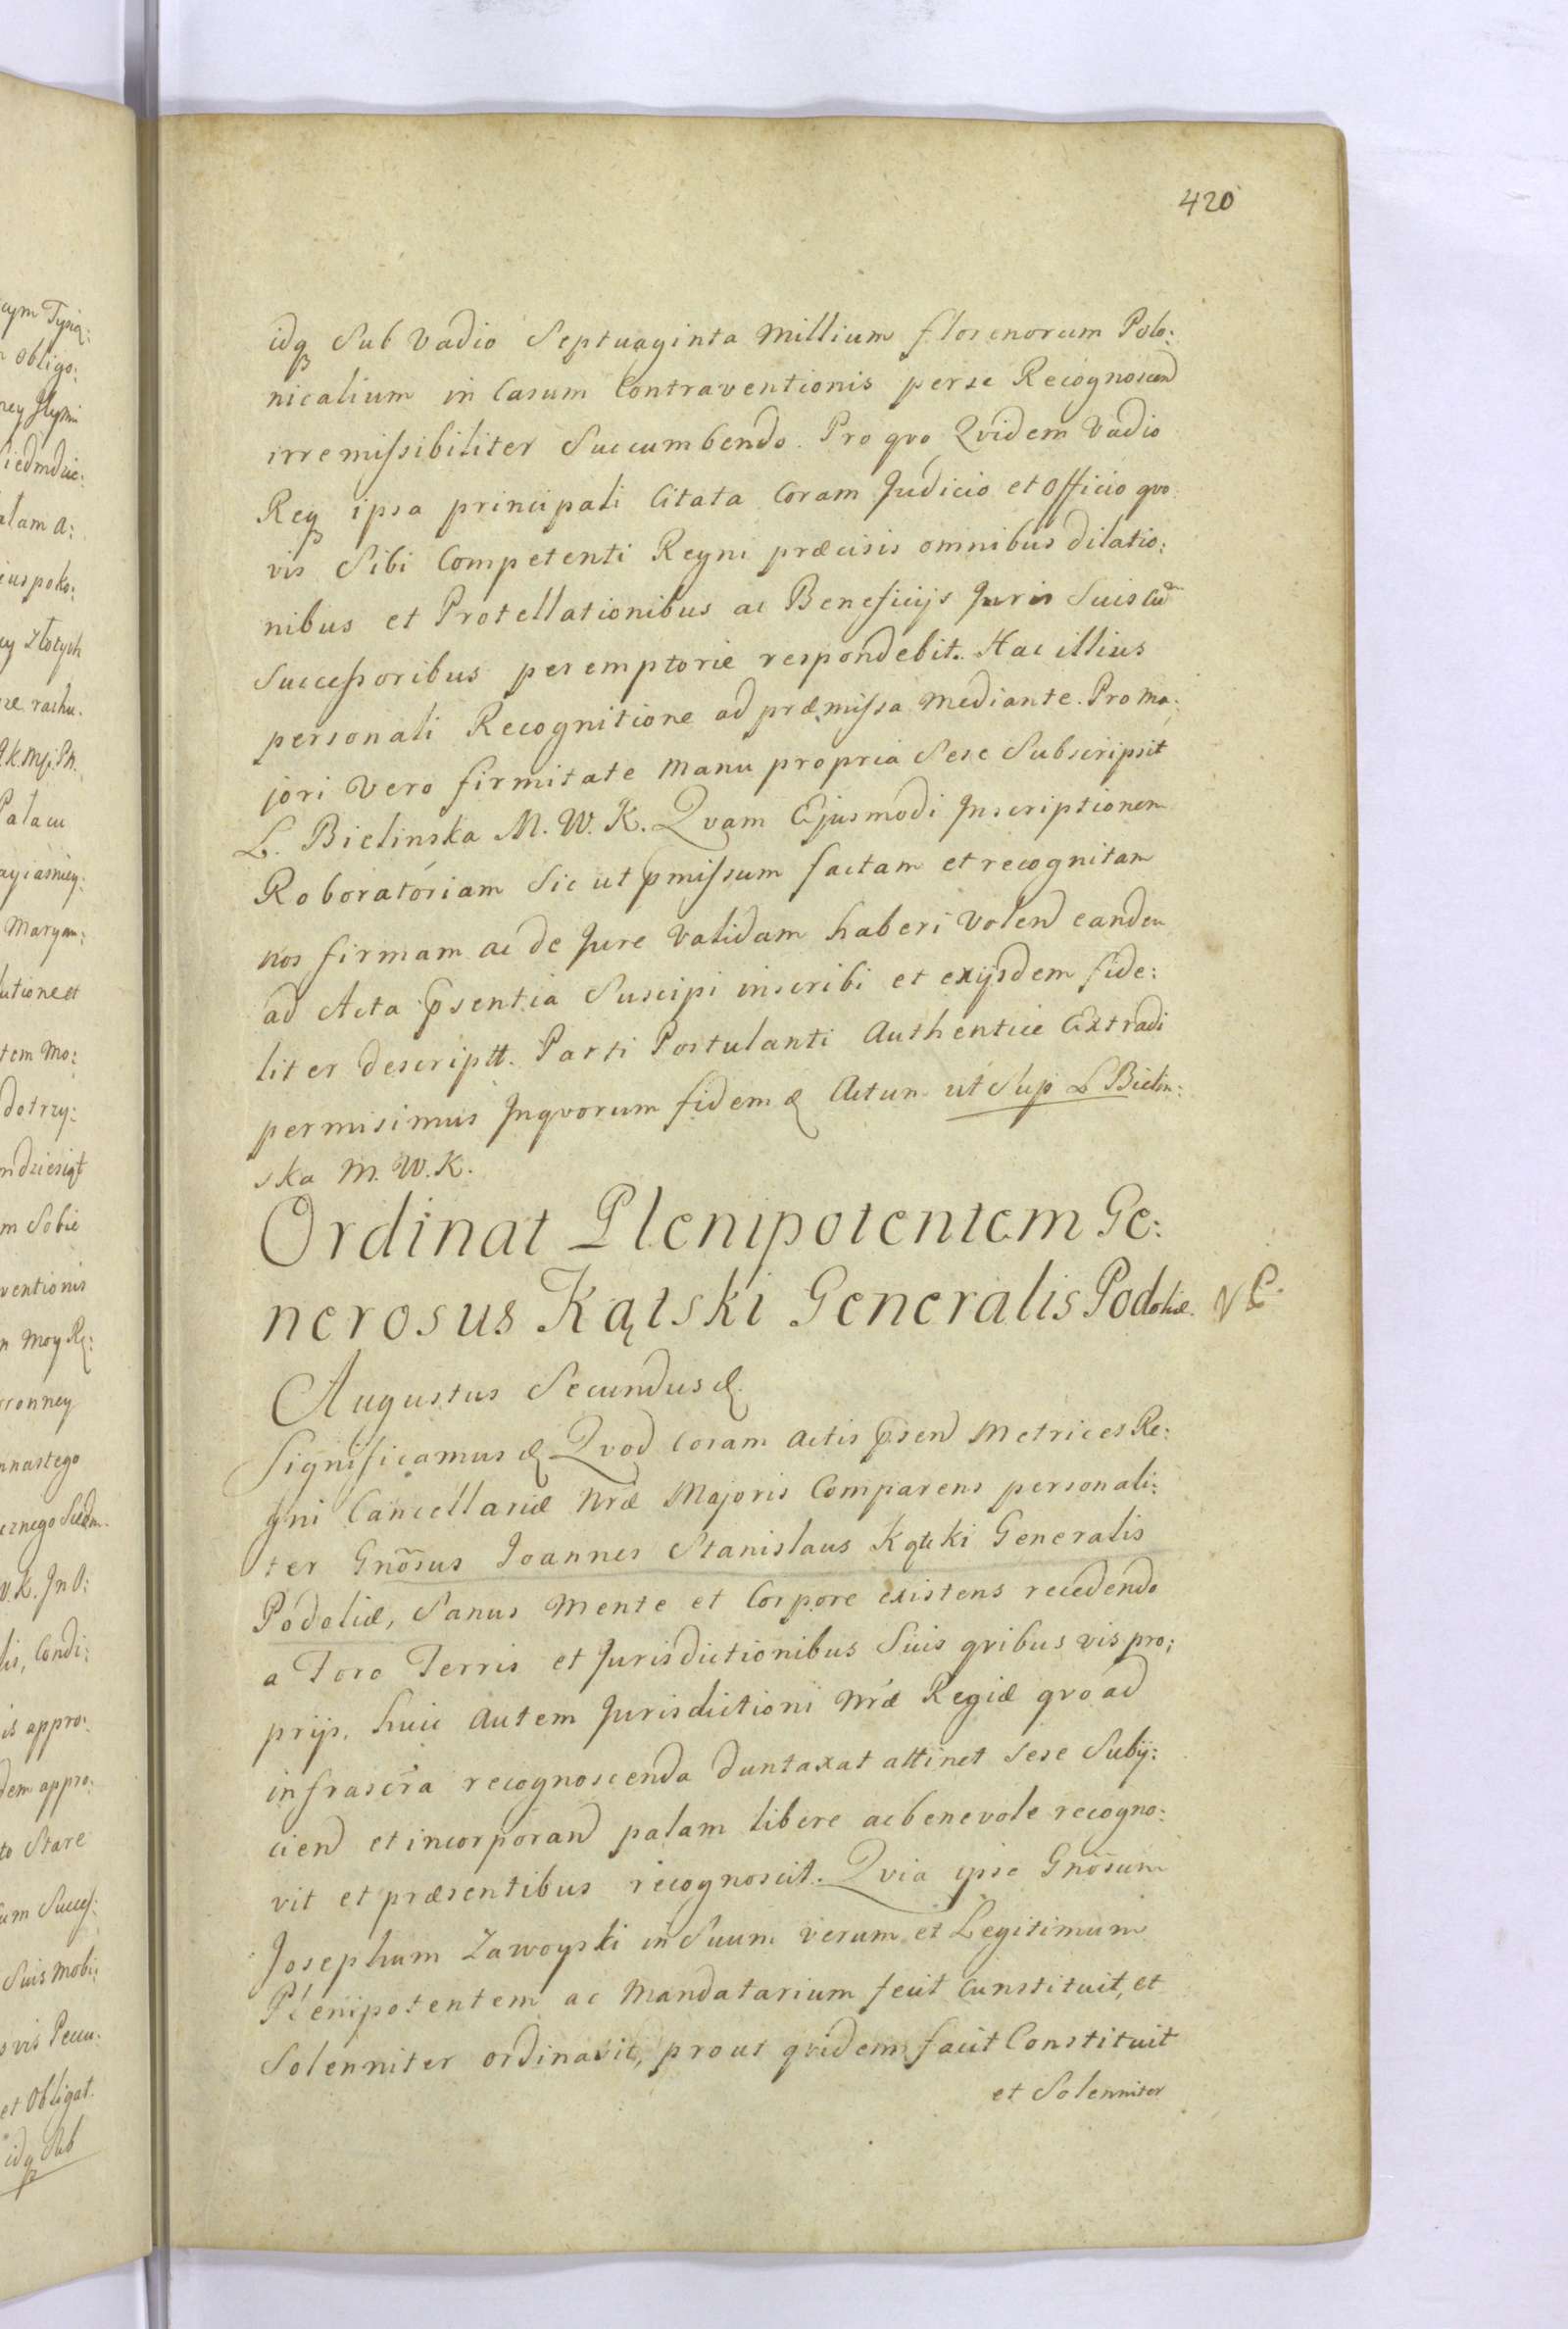 420
idq Sub Vadio Septuaginta Millium florenorum Polo:
nicalium in Casum Contraventionis per se Recognoscend
irremissibiliter Succumbendo. Pro qvo Qvidem Vadio
Req ipsa principali Citata Coram Judicio et Officio qvo
vis Sibi Competenti Regni præcisis omnibus dilatio:
nibus et Protellationibus ac Beneficijs Juris Suis cu
Successoribus peremptorie respondebit. Hac illius
personali Recognitione ad præmissa Mediante. Pro ma:
jori Vero firmitate Manu propria Sese Subscripsit
L. Bielinska M. W. K. Qvam Ejusmodi Inscriptionem
Roboratóriam Sic ut pmissum factam et recognitam
nos firmam ac de Jure Validam haberi Volend eandem
ad Acta psentia Suscipi inscribi et exijsdem fide:
liter descriptt. Parti Postulanti Authentice Extradi
permisimus Jnqvorum fidem & Actum ut Sup L Bielin:
ska M. W. K.
Ordinat Plenipotentem Ge:
nerosus Kątski Generalis Podoliæ.
Augustus Secundus &
Significamus & Qvod coram Actis psend Metrices Re:
gni Cancellariæ Nræ Majoris Comparens personali:
ter Gnosus Joannes Stanislaus Kątski Generalis
Podoliæ, Sanus Mente et Corpore existens recedendo
a Foro Terris et Jurisdictionibus Suis qvibus vis pro:
prijs, huic Autem Jurisdictioni Nræ Regiæ qvo ad
infrascra recognoscenda duntaxat attinet sese Subij:
ciend et incorporand palam libere ac benevole recogno:
vit et præsentibus recognoscit. Qvia ipse Gnosum
Josephum Zawoyski in Suum verum et Legitimum
Plenipotentem ac Mandatarium fecit Cunstituit, et
Solenniter ordinavit, prout qvidem facit Constituit
et Solenniter